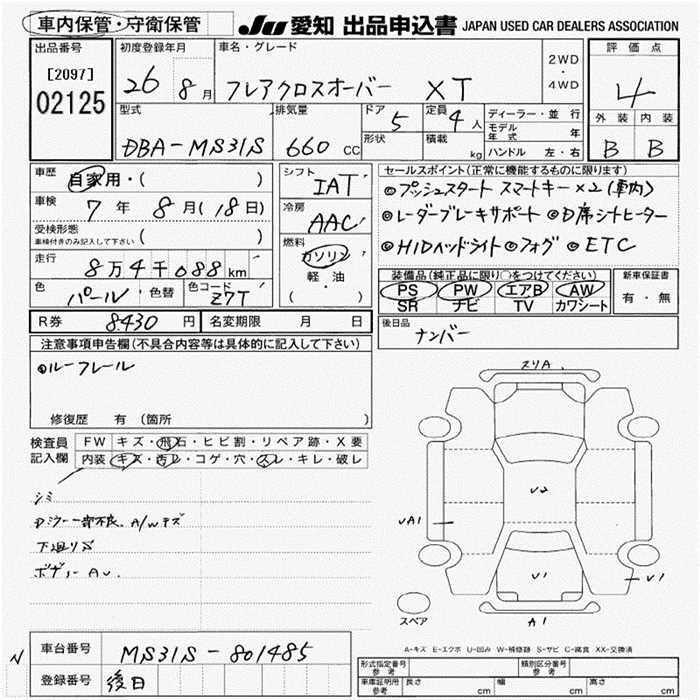 車内保管・守衛保管
JU 愛知 出品申込書 JAPAN USED CAR DEALERS ASSOCIATION
出品番号
[2097]
02125
初度登録年月
26 8月
車名・グレード
フレアクロスオーバー XT
2WD
・
4WD
評価点
4
外装 内装
B B
型式
DBA-MS31S
排気量
660 CC
ドア 5
形状
定員 4人
積載 kg
ディーラー・並行
モデル年式 年
ハンドル 左・右
車歴
自家用・( )
車検 7年 8月(18日)
受検形態
車検付きのみ記入して下さい ( )
走行 8万4千088km
色 パール 色替 色コード Z7T
シフト IAT
冷房 AAC
燃料
ガソリン
軽・油
( ・ )
セールスポイント(正常に機能するものに限ります)
◎プッシュスタート スマートキー×2(車内)
◎レーダーブレーキサポート ◎D席シートヒーター
◎HIDヘッドライト ◎フォグ ◎ETC
装備品(純正品に限り○をつけてください)
PS PW エアB AW
SR ナビ TV カワシート
新車保証書
有・無
R券 8430円 名変期限 月 日
後日品
ナンバー
注意事項申告欄(不具合内容等は具体的に記入して下さい)
◎ルーフレール
修復歴 有 (箇所 )
検査員
記入欄
FW キズ・飛石・ヒビ割・リペア跡・X要
内装 キズ・汚レ・コゲ・穴・スレ・キレ・破レ
シミ
Dミラー一部不良、A/Wキズ
下廻りS
ボディーAU.
スリA
U2
UA1
U1
U1
A1
スペア
A-キズ E-エクボ U-凹み W-補修跡 S-サビ C-腐食 XX-交換済
N
車台番号 MS31S-801485
登録番号 後日
形式指定番号
参考
類別区分番号
参考
車庫証明用
参考
長さ cm 幅 cm 高さ cm